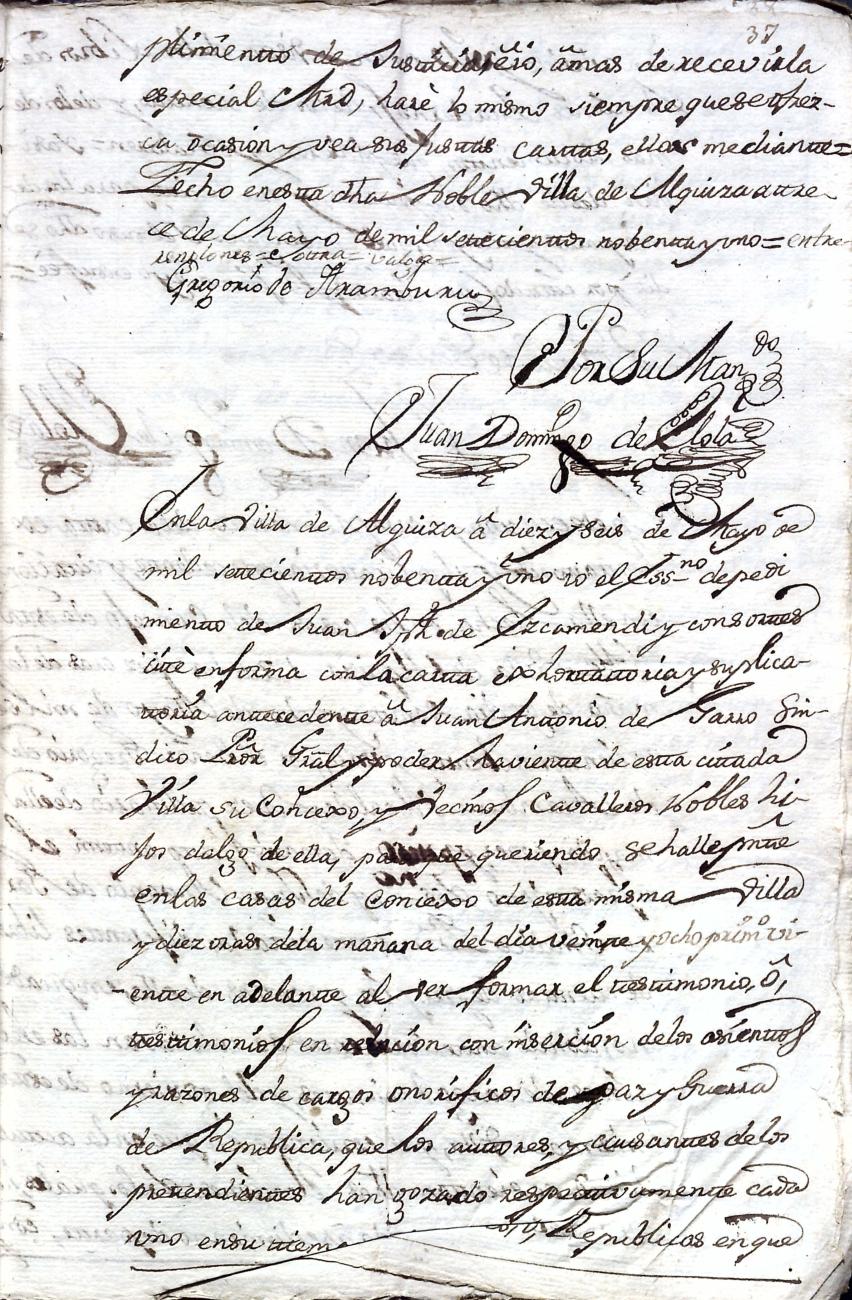 37
plimientto de Justicia, ettó, amas de recevirla
especial Mrd, harè lo mismo siempre que se ofrez-
ca ocasion y vea sus Justas cartas, ellas mediantte=
Fecho en estta dha Noble Villa de Alquiza a tre-
ce de Mayo de mil settecienttos nobentta y uno = entre
renglones = e Ottra = valga =
Gregorio de Aramburu
Por Su Mando
Juan Domingo de Olola
En la Villa de Alquiza â diez y seis de Mayo de
mil settecienttos nobentta y uno io el Essno de pedi
mientto de Juan Jph de Izcamendi y consorttes
citè en forma con la cartta exhorttattoria y suplica-
ttoria anttecedentte â Juan Anttonio de Garro Sin-
dico Pror Gral y poder havientte de estta cittada
Villa su Concexo, y Vecinos Cavalleros Nobles hi-
jos dalgo de ella, para que queriendo se halle pntte
en las casas del Concexo de estta misma Villa
y diez oras dela mañana del dia veinte y ocho primo vi-
entte en adelantte al ver formar el ttesttimonio, ô,
ttesttimonios en relacion con insercion delos asienttos
y razones de cargos onorificos de paz y Guerra
de Republica, que los auttores, y causanttes delos
prettendienttes han gozado respecttivamentte cada
uno en su ttiem Republicas en que